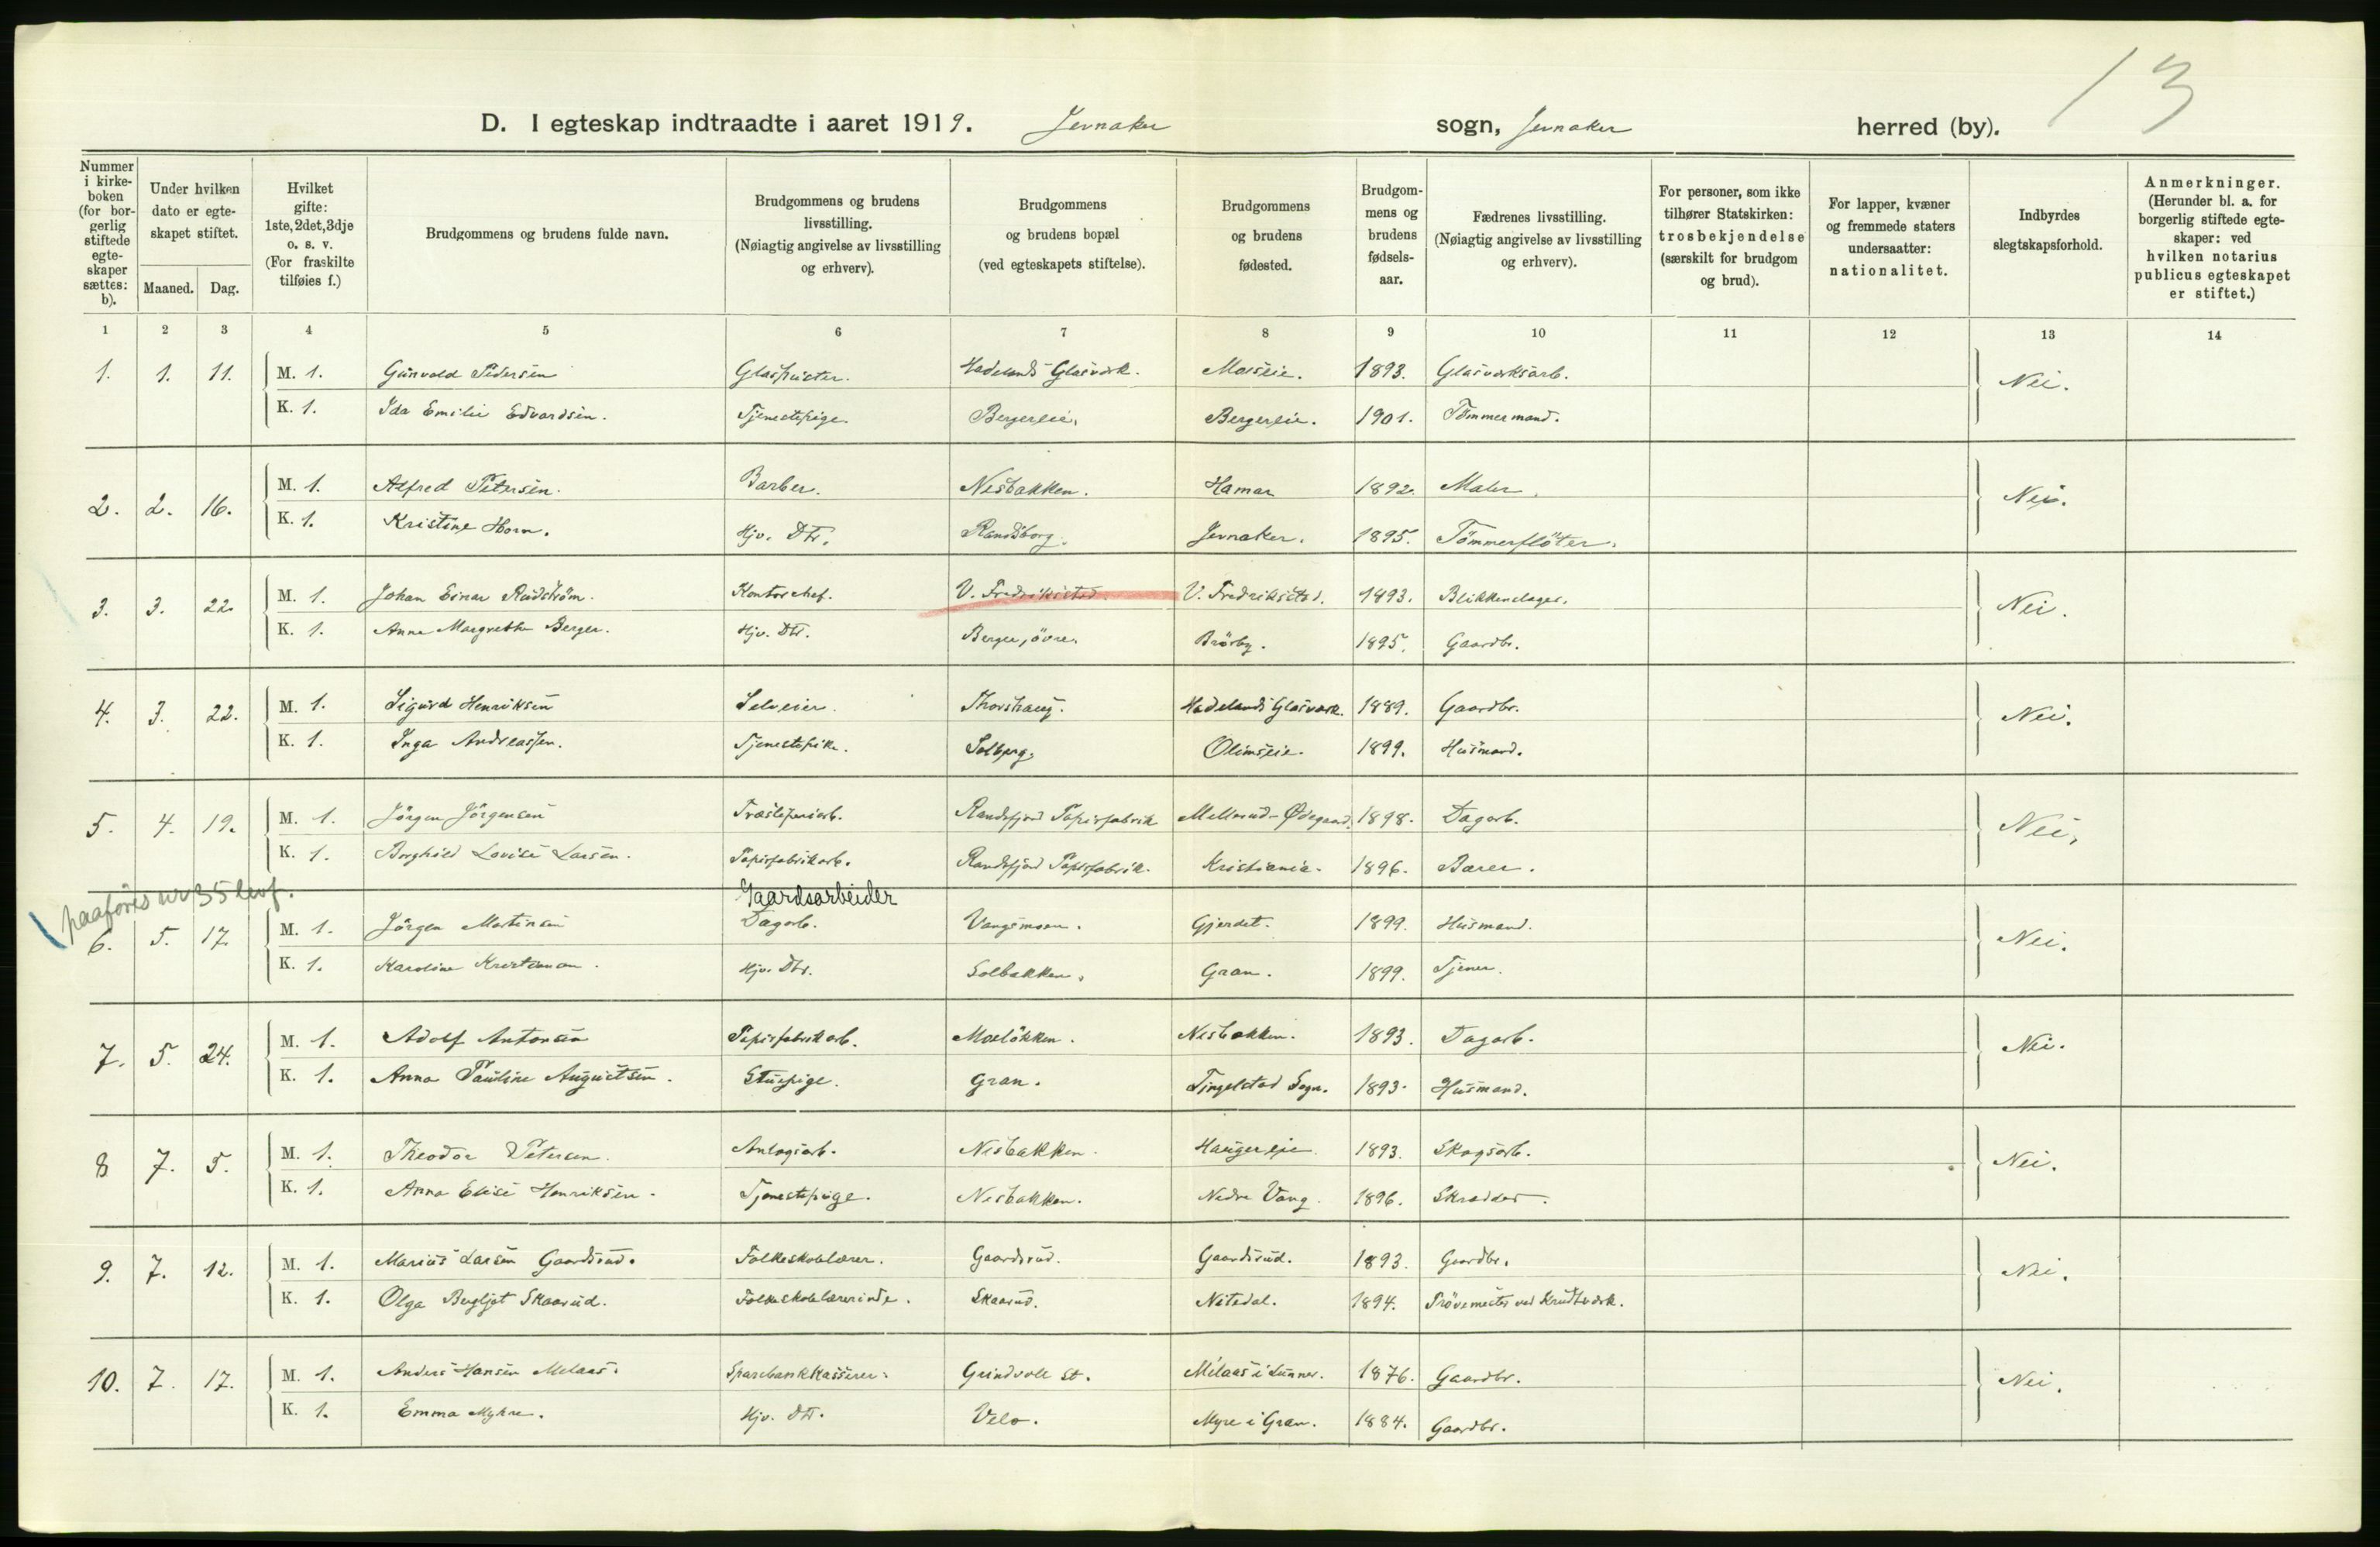 13
D. I egteskap indtraadte i aaret 1919. Jevnaker sogn, Jevnaker herred (by).
Nummer i kirke-boken (for bor-gerlig stiftede egte-skaper sættes: b).
Under hvilken dato er egte-skapet stiftet.
Maaned. Dag.
Hvilket gifte: 1ste, 2det, 3dje o. s. v. (For fraskilte tilføies f.)
Brudgommens og brudens fulde navn.
Brudgommens og brudens livsstilling. (Nøiagtig angivelse av livsstilling og erhverv).
Brudgommens og brudens bopæl (ved egteskapets stiftelse).
Brudgommens og brudens fødested.
Brudgom-mens og brudens fødsels-aar.
Fædrenes livsstilling. (Nøiagtig angivelse av livsstilling og erhverv).
For personer, som ikke tilhører Statskirken: trosbekjendelse (særskilt for brudgom og brud).
For lapper, kvæner og fremmede staters undersaatter: nationalitet.
Indbyrdes slegtskapsforhold.
Anmerkninger. (Herunder bl. a. for borgerlig stiftede egte-skaper: ved hvilken notarius publicus egteskapet er stiftet.)
1 2 3 4 5 6 7 8 9 10 11 12 13 14
1. 1. 11. M. 1. Gunvald Pedersen Glaspuster. Hadelands Glasværk. Moseie. 1893. Glasværksarb. Nei.
K. 1. Ida Emilie Edvardsen. Tjenestepige. Bergereie. Bergereie. 1901. Tömmermand.
2. 2. 16. M. 1. Alfred Petersen. Barber. Nesbakken. Hamar 1892. Maler. Nei.
K. 1. Kristine Horn. Hjv. Dtr. Randsborg. Jevnaker. 1895. Tömmerflöter.
3. 3. 22. M. 1. Johan Einar Rudström. Kontorchef. V. Fredrikstad. V. Fredrikstad. 1893. Blikkenslager. Nei.
K. 1. Anna Margrethe Berger. Hjv. Dtr. Berger, övre. Brörby. 1895. Gaardbr.
4. 3. 22. M. 1. Sigurd Henriksen Selveier. Thorshaug. Hadelands Glasværk. 1889. Gaardbr. Nei.
K. 1. Inga Andreassen. Tjenestepike. Solberg. Olimseie. 1899. Husmand.
5. 4. 19. M. 1. Jörgen Jörgensen Træsliperiarb. Randsfjord Papirfabrik Mellerud-Ødegaard. 1898. Dagarb. Nei.
K. 1. Borghild Lovise Larsen. Papirfabrikarb. Randsfjord Papirfabrik. Kristiania. 1896. Bærer.
paaföres nr 35
Gaardsarbeider
6. 5. 17 M. 1. Jörgen Martinsen Dagarb. Vangsmoen. Gjerdet. 1899. Husmand. Nei.
K. 1. Karoline Kristiansen. Hjv. Dtr. Solbakken. Gran. 1899. Tjener.
7. 5. 24. M. 1. Adolf Antonsen Papirfabrikarb. Moelökken. Nesbakken. 1893. Dagarb. Nei.
K. 1. Anna Pauline Augustsen. Stuepige. Gran. Tingelstad Sogn. 1893. Husmand.
8 7. 5. M. 1. Theodor Petersen. Anlægsarb. Nesbakken. Haugereie 1893. Skogsarb. Nei.
K. 1. Anna Elise Henriksen. Tjenestepige. Nesbakken. Nedre Vang. 1896. Skrædder.
9. 7. 12. M. 1. Marius Larsen Gaardsrud. Folkeskolelærer. Gaardsrud. Gaardsrud. 1893. Gaardbr. Nei.
K. 1. Olga Bergljot Skaarud. Folkeskolelærerinde. Skaarud. Nitedal. 1894. Prövemester ved Krudtværk.
10. 7. 17. M. 1. Anders Hansen Melaas. Sparebankkasserer. Grindvoll St. Melaas i Lunner. 1876. Gaardbr. Nei.
K. 1. Emma Myhre. Hjv. Dtr. Velo. Myre i Gran. 1884. Gaardbr.